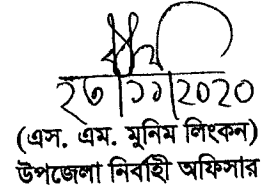 ২৩/১১/2020
(এস. এম. মুনিম লিংকন)
উপজেলা নির্বাহী অফিসার